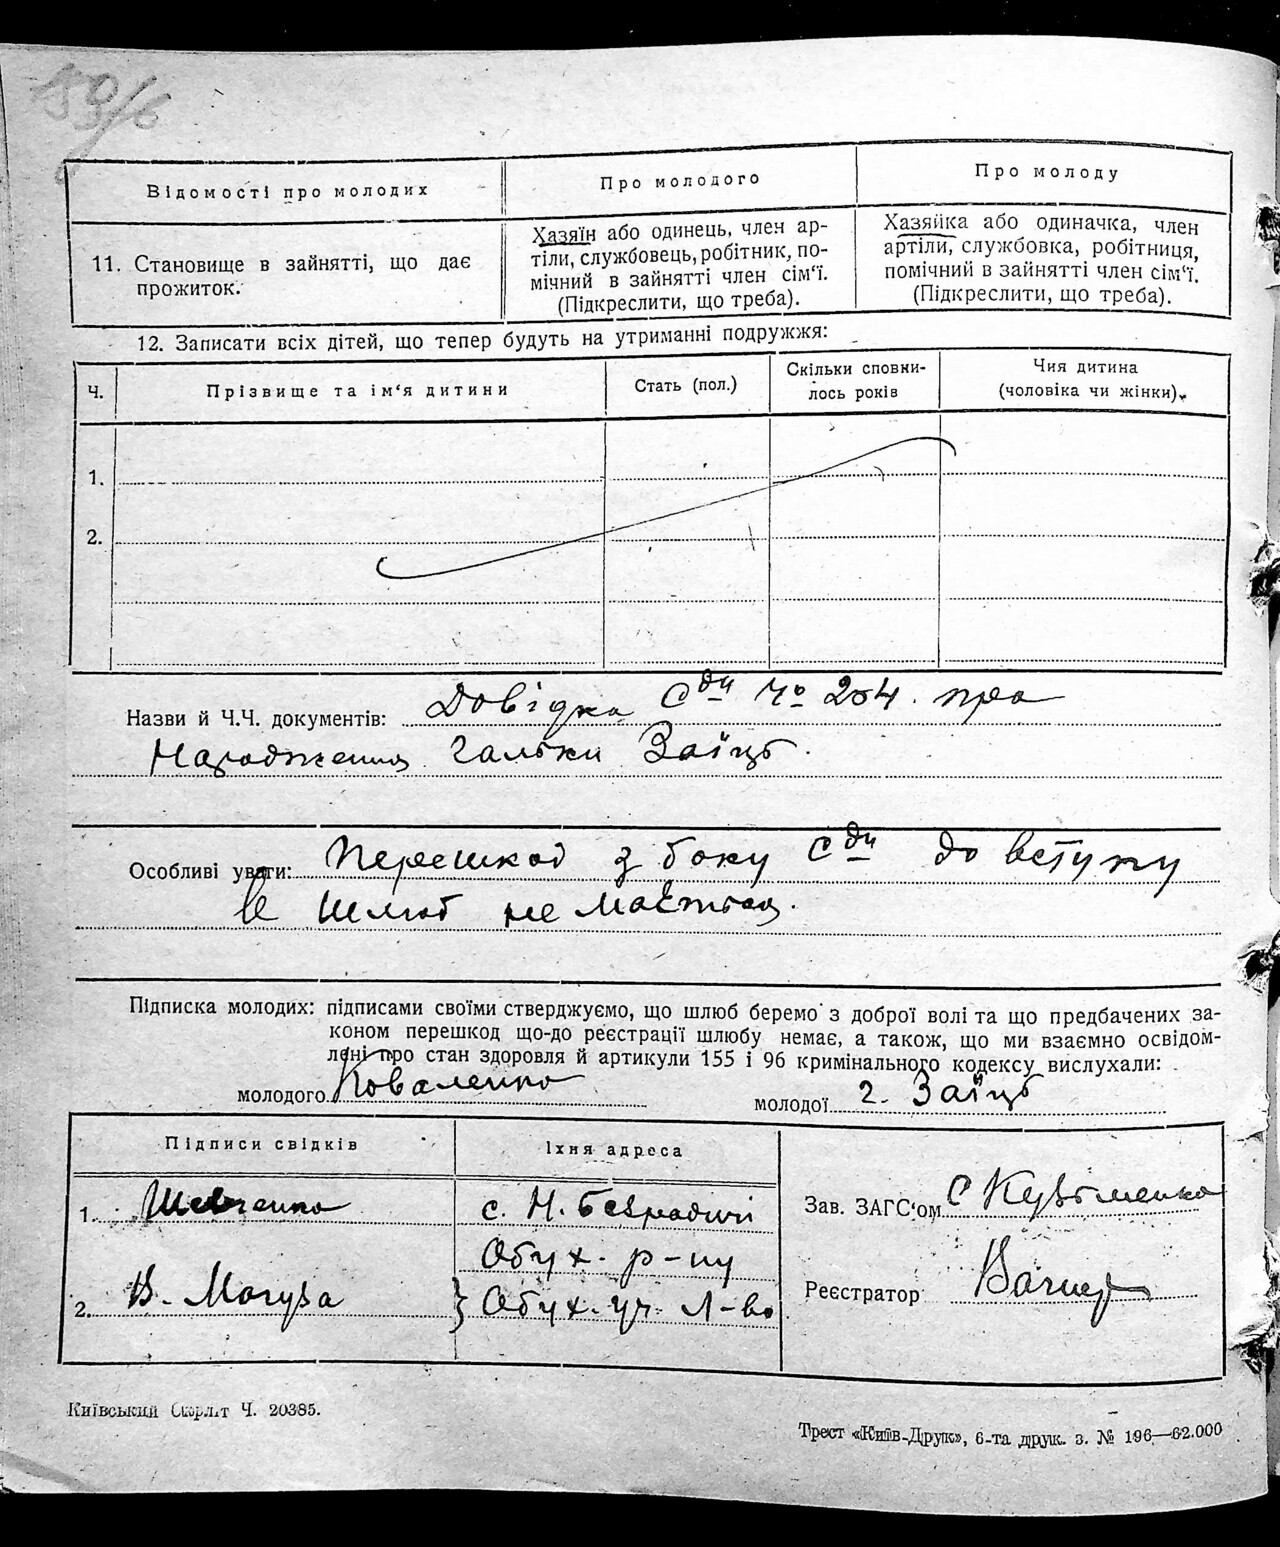 159/6
Відомості про молодих
Про молодого
Про молоду
11. Становище в зайнятті, що дає
прожиток:
Хазяїн або одинець, член ар-
тілі, службовець, робітник, по-
мічний в зайнятті член сім'ї.
(Підкреслити, що треба).
Хазяйка або одиначка, член
артіли, службовка, робітниця,
помічний в зайнятті член сім'ї.
(Підкреслити, що треба).
12. Записати всіх дітей, що тепер будуть на утриманні подружжя:
Ч.
Прізвище та ім'я дитини
Стать (пол.)
Скільки сповни-
лось років
Чия дитина
(чоловіка чи жінки).
1.
2.
Назви й Ч.Ч. документів: Довідка С/ди № 204. про
Народження Гальки Заїць.
Особливі уваги: Перешкод з боку С/ди до вступу
в шлюб не маеться.
Підписка молодих: підписами своїми стверджуємо, що шлюб беремо з доброї волі та що предбачених за-
коном перешкод що-до реєстрації шлюбу немає, а також, що ми взаємно освідом-
лені про стан здоровля й артикули 155 і 96 кримінального кодексу вислухали:
молодого Коваленко
молодої Г. Заїць
Підписи свідків
Їхня адреса
1. Шевченко
с. Н. Безрадичі
Обух. р-ну
2. В. Могуза
Обух. уч. Л-во
Зав. ЗАГС'ом С Кузьменко
Реєстратор
Київський Окрліт Ч. 20385.
Трест «Київ-Друк», 6-та друк. з. № 196—62.000